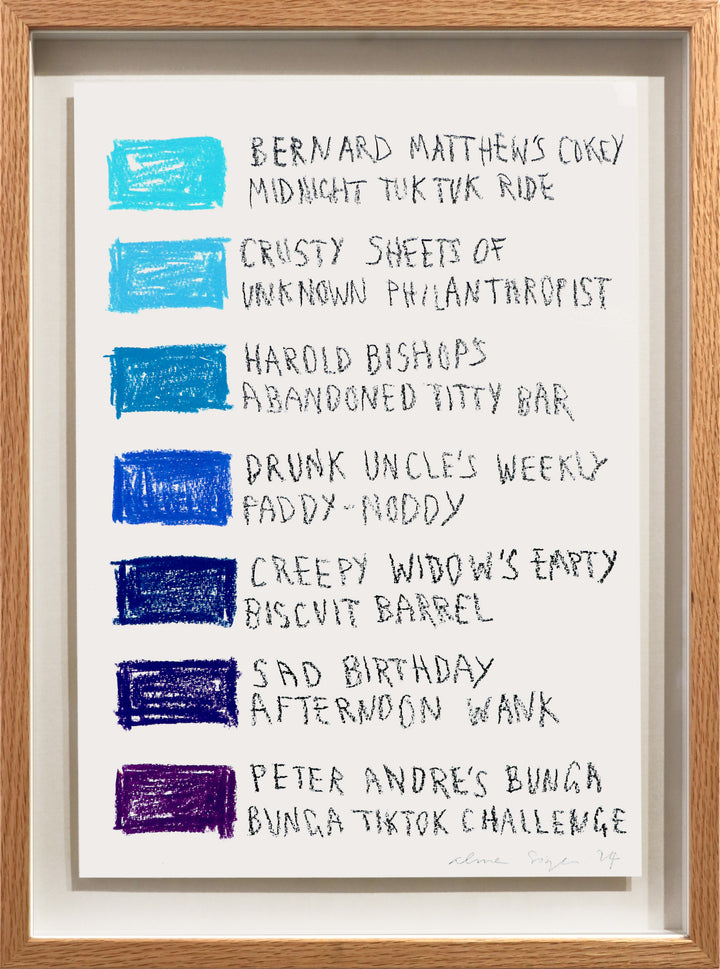 BERNARD MATTHEW'S COKEY
MIDNIGHT TUK TUK RIDE
CRUSTY SHEETS OF
UNKNOWN PHILANTHROPIST
HAROLD BISHOPS
ABANDONED TITTY BAR
DRUNK UNCLE'S WEEKLY
PADDY-NODDY
CREEPY WIDOW'S EMPTY
BISCUIT BARREL
SAD BIRTHDAY
AFTERNOON WANK
PETER ANDRE'S BUNGA
BUNGA TIKTOK CHALLENGE
24